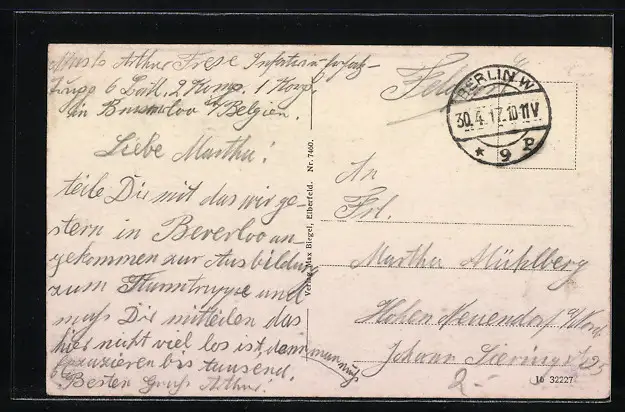 Arthur Frese Infanterie
6 Batl. 2 Komp. 1 Korp.
in Beverloo Belgien.
Liebe Martha!
teile Dir mit das wir ge-
stern in Beverloo an-
gekommen zur Ausbildung
zum Sturmtruppe und
muss Dir mitteilen das
hier nicht viel los ist, denn man muss
exerzieren bis tausend.
Besten Gruss Arthur!
Verlag Max Biegel, Elberfeld. Nr. 7460.
Feldpost
BERLIN W
30.4.17.10-11V
* 9 P
An
Frl.
Martha Mühlberg
Hohen Neuendorf a/Nordb.
2.-
Ib 32227